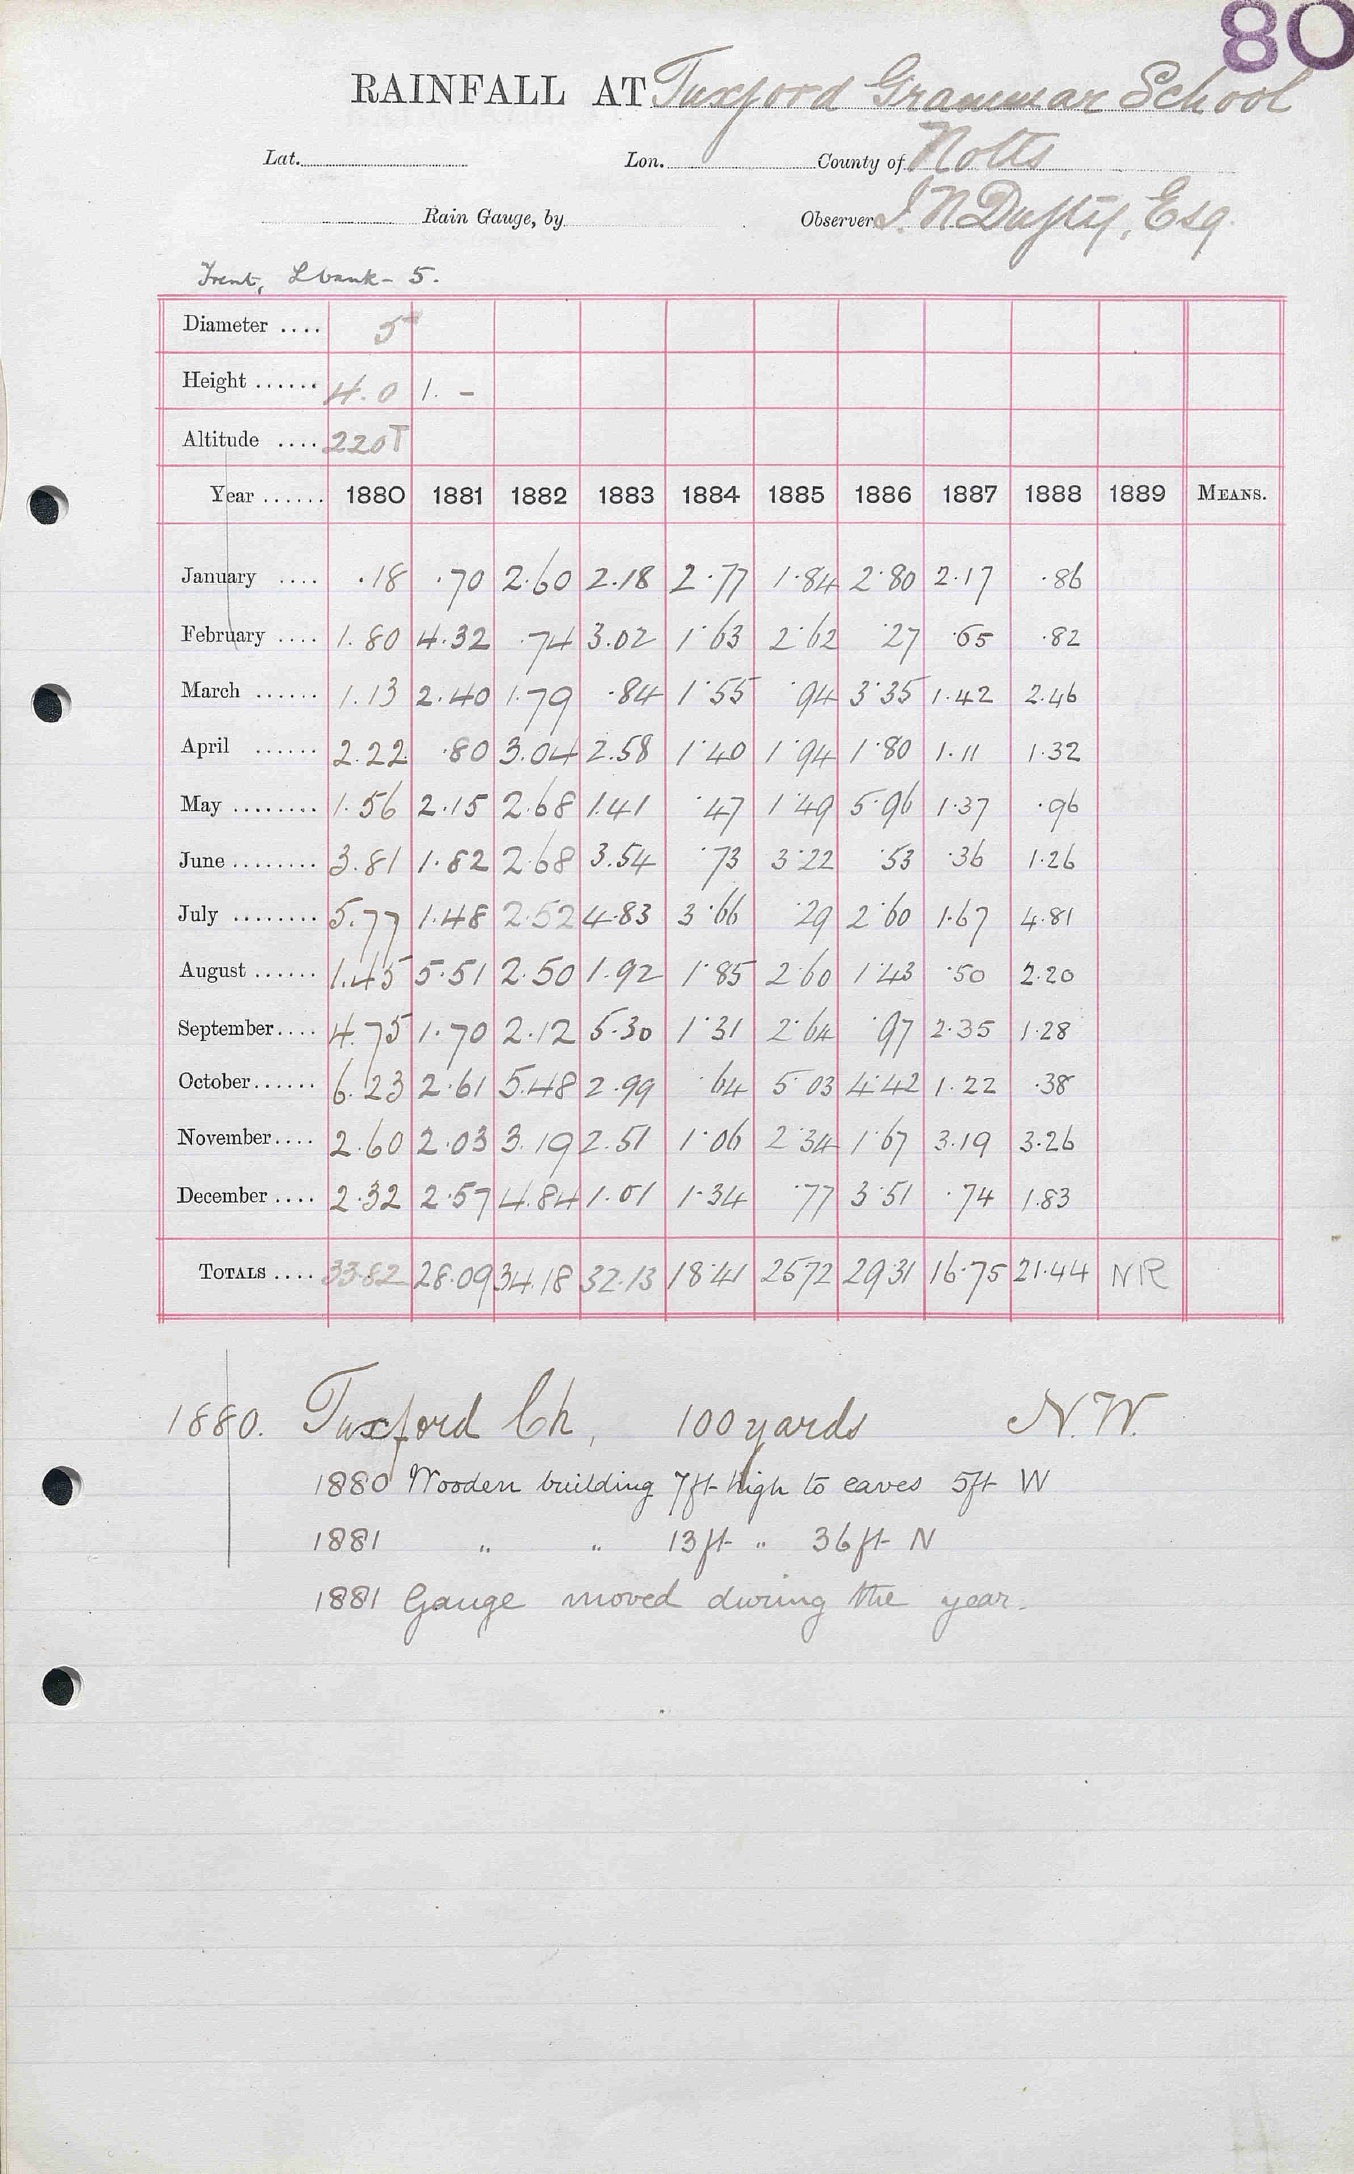 80
RAINFALL AT Tuxford Grammar School
Lat. Lon. County of Notts
Rain Gauge, by Observer J. N Dufty, Esq.
Trent, L bank - 5.
Diameter .... 5
Height ...... 4.0 1. -
Altitude .... 220T
Year ...... 1880 1881 1882 1883 1884 1885 1886 1887 1888 1889 MEANS.
January .... .18 .70 2.60 2.18 2.77 1.84 2.80 2.17 .86
February .... 1.80 4.32 .74 3.02 1.63 2.62 .27 .65 .82
March ...... 1.13 2.40 1.79 .84 1.55 .94 3.35 1.42 2.46
April ...... 2.22 .80 3.04 2.58 1.40 1.94 1.80 1.11 1.32
May ........ 1.56 2.15 2.68 1.41 .47 1.49 5.96 1.37 .96
June ........ 3.81 1.82 2.68 3.54 .73 3.22 .53 .36 1.26
July ........ 5.77 1.48 2.52 4.83 3.66 .29 2.60 1.67 4.81
August ...... 1.45 5.51 2.50 1.92 1.85 2.60 1.43 .50 2.20
September .... 4.75 1.70 2.12 5.30 1.31 2.64 .97 2.35 1.28
October ...... 6.23 2.61 5.48 2.99 .64 5.03 4.42 1.22 .38
November .... 2.60 2.03 3.19 2.51 1.06 2.34 1.67 3.19 3.26
December .... 2.32 2.57 4.84 1.01 1.34 .77 3.51 .74 1.83
TOTALS .... 33.82 28.09 34.18 32.13 18.41 25.72 29.31 16.75 21.44 NR
1880. Tuxford Ch, 100 yards N.W.
1880 Wooden building 7ft high to eaves 5ft W
1881 " " 13ft " 36ft N
1881 Gauge moved during the year.